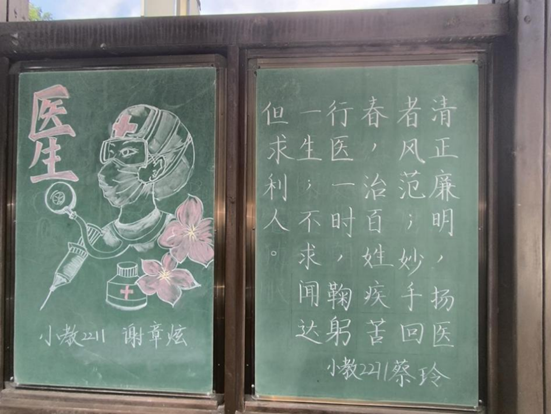 医生
小教2211 谢章炫
清正廉明，扬医
者风范；妙手回
春，治百姓疾苦
行医一时，鞠躬
一生；不求闻达
但求利人。
小教2211蔡玲